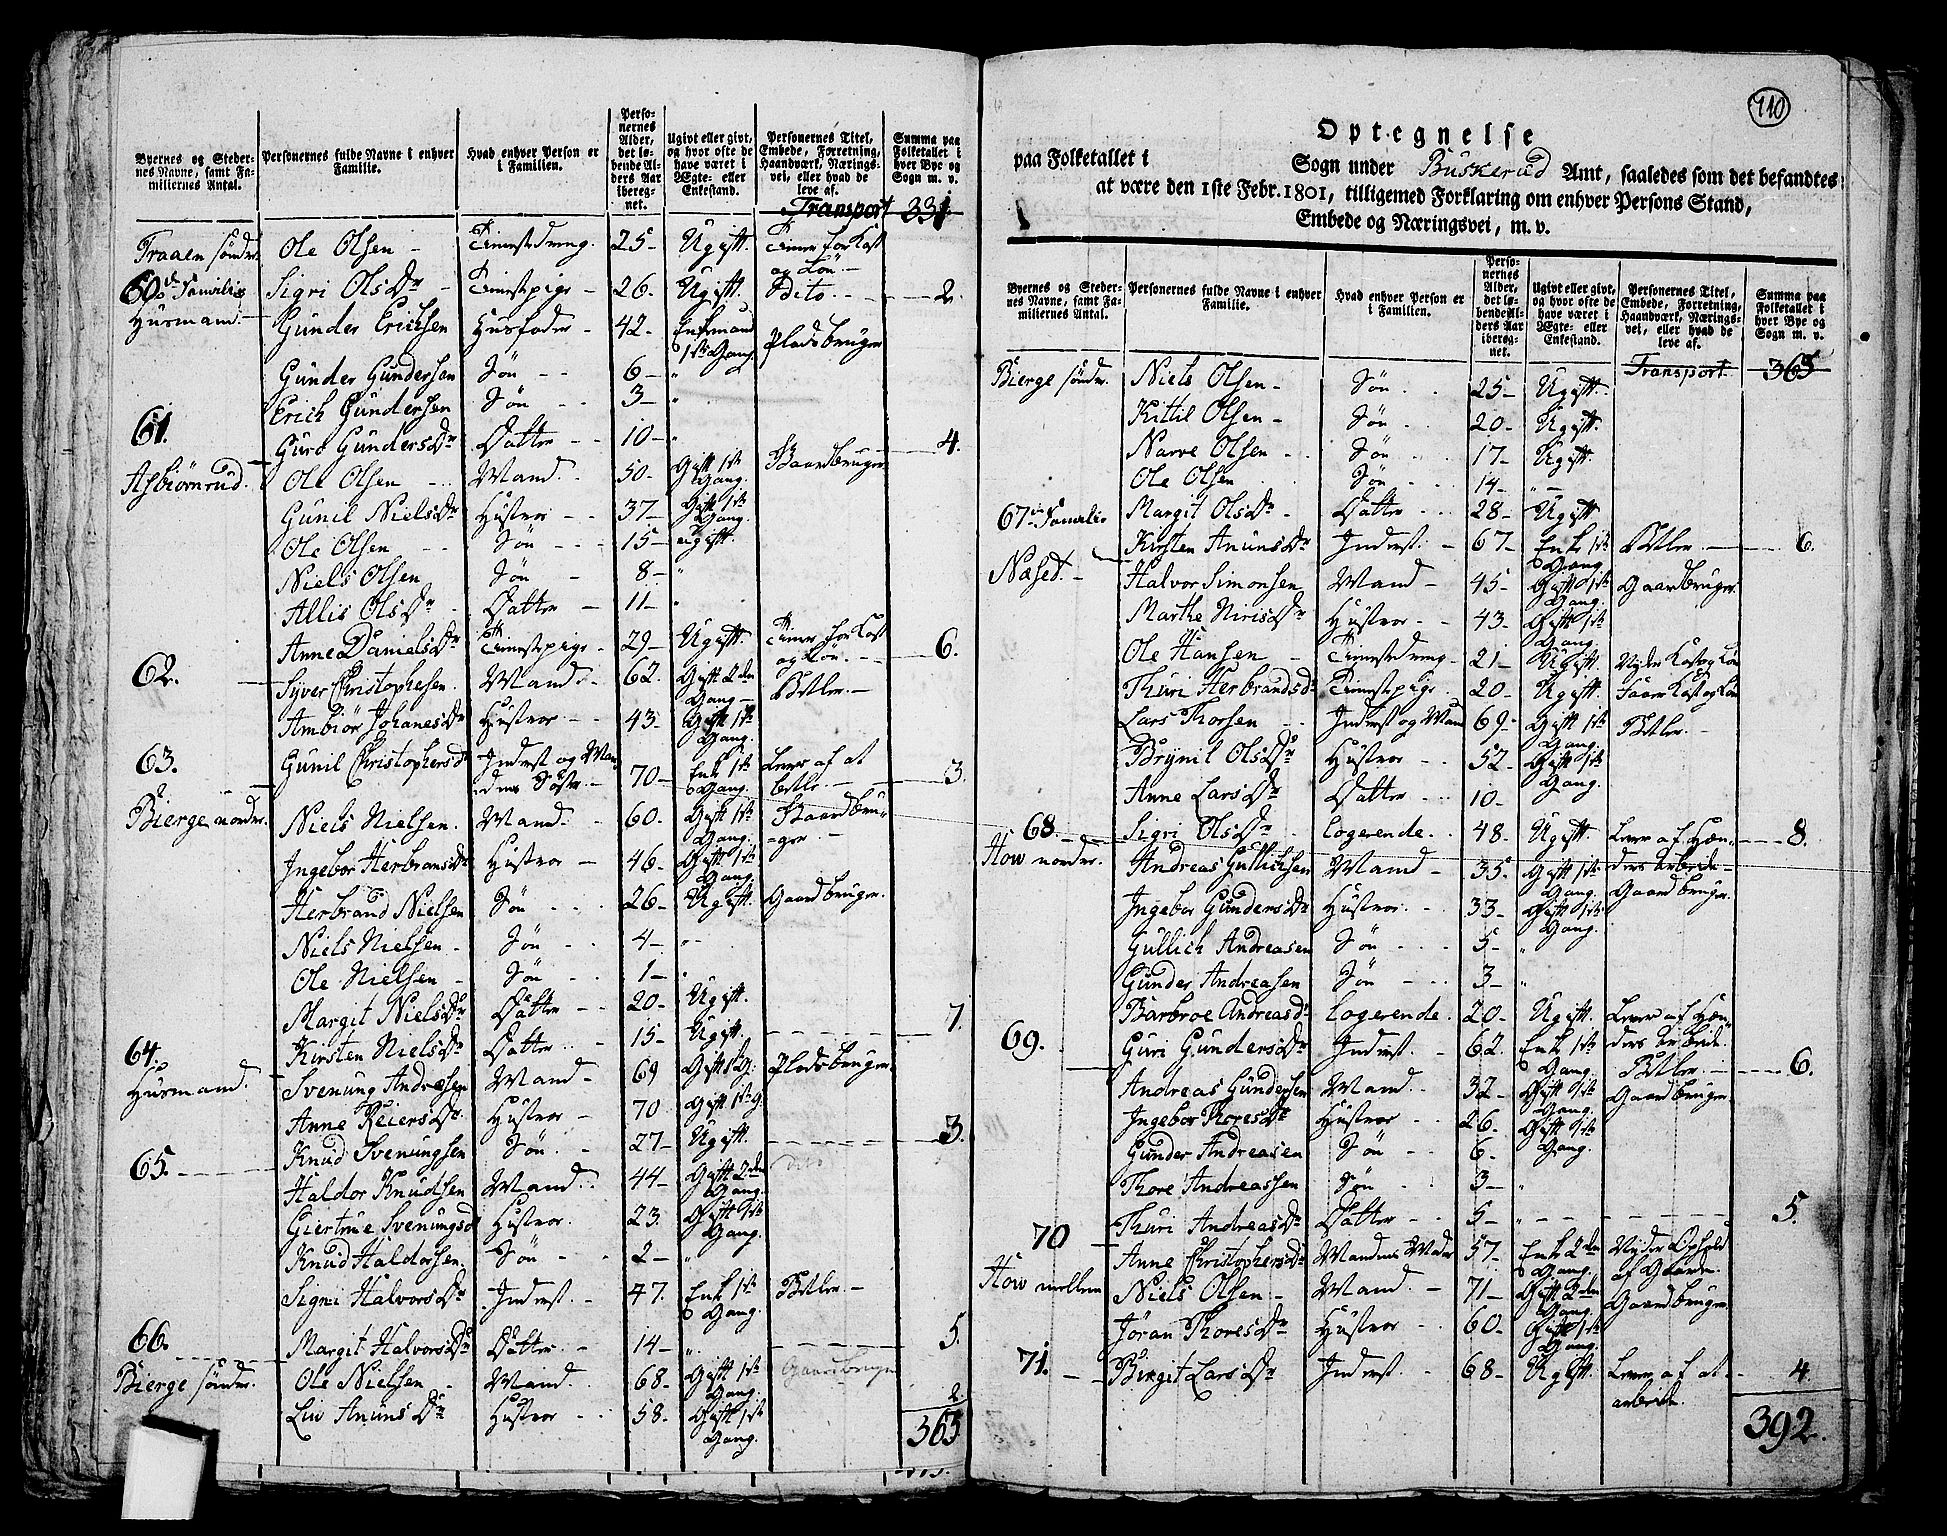 Byernes og Steder-
nes Navne, samt Fa-
miliernes Antal.
Personernes fulde Navne i enhver
Familie.
Hvad enhver Person er
i Familien.
Perso-
nernes
Alder,
det lø-
bende Al-
ders Aar
iberegnet.
Ugivt eller givt,
og hvor ofte de
have været i
Ægte- eller
Enkestand.
Personernes Titel,
Embede, Forretning,
Haandværk, Nærings-
vei, eller hvad de
leve af.
Summa paa
Folketallet i
hver Bye og
Sogn m. v.
Transport 331
Traaen søndr. Ole Olsen - Tienestedreng. 25- Ugift. Tiener for Kost
og Løn. -
60de Familie Sigri OlsDr Tienestepige - 26. Ugift. Dito. - 2.
Husmand. Gunder Erichsen Husfader - 42- Enkemand
1ste Gang. Pladsbruger
Gunder Gundersen Søn - - 6- "
Erich Gundersen Søn - - 3- "
61. Guro GundersDr Datter - - 10- " 4.
Asbiørnrud. Ole Olsen - Mand. 50- Gift 1ste
Gang. Gaardbruger
Gunil NielsDr Hustroe - - 37- Gift 1ste
Gang.
Ole Olsen - - Søn - - - 15- ugift.
Niels Olsen Søn - 8- "
Allis OlsDr - Datter - 11- "
Anne DanielsDr Tienestepige - 29- Ugift. Tiener for Kost
og Løn. - 6.
62. Syver Christophesen. Mand. - 62. Gift 2den
Gang - Betler. -
Ambiør JohanesDr Hustroe - - 43- Gift 1ste
Gang.
63. Gunil ChristophersD Inderst og Man
dens Søster - 70- Enke 1ste
Gang. Lever af at
betle - 3.
Bierge nordre. Niels Nielsen. Mand. - 60. Gift 1ste
Gang. Gaardbru-
-ger
Ingebor HerbransDr Hustroe - 46- Gift 1ste
Gang.
Herbrand Nielsen Søn - - - 26- Ugift. Gaardbruger.
Niels Nielsen - Søn - - 4- "
Ole Nielsen - Søn - - 1- "
Margit NielsDr Datter - - 20- Ugift.
Kirsten NielsDr Datter. - 15- Ugift. 7.
64. Husmand. Svenung Andresen Mand - 69 Gift 1ste G. Pladsbruger.
Anne ReiersDr. Hustroe - 70 Gift 1ste g.
Knud Svenungsen Søn. - 27- Ugift. 3.
65. Haldor Knudsen Mand. 44- Gift 2den
Gang. dito
Giertrue SvenungsD Hustroe. 23. Gift 1ste
Gang.
Knud Haldorsen. Søn - 2- "
Signi HalvorsDr Inderst. - 47. Enke 1ste
Gang. Betler. -
Margit HalvorsDr Datter. - 14- " 5.
66. Bierge søndre. Ole Nielsen - Mand. 68- Gift 1ste
Gang. Gaardbruger
Liv AnunsDr Hustroe - - 58. Gift 1ste
Gang. 2
365
110
Optegnelse
paa Folketallet i Sogn under Buskerud Amt, saaledes som det befandtes
at være den 1ste Febr. 1801, tilligemed Forklaring om enhver Persons Stand,
Embede og Næringsvei, m. v.
Byernes og Steder-
nes Navne, samt Fa-
miliernes Antal.
Personernes fulde Navne i enhver
Familie.
Hvad enhver Person er
i Familien.
Perso-
nernes
Alder,
det lø-
bende Al-
ders Aar
ibereg-
net.
Ugivt eller givt,
og hvor ofte de
have været i
Ægte- eller
Enkestand.
Personernes Titel,
Embede, Forretning,
Haandværk, Nærings-
vei, eller hvad de
leve af.
Summa paa
Folketallet i
hver Bye og
Sogn m. v.
Transport 365
Bierge søndr. Niels Olsen - Søn - - 25- Ugift.
Kittil Olsen - Søn - - 20- Ugift.
Narve Olsen - - Søn - - 17- Ugift.
Ole Olsen Søn - - 14- "
67de Familie Margit OlsDr - Datter - - 28- Ugift
Kirsten AnunsDr Inderst. - 67- Enke 1ste
Gang. Betler. - 6.
Næset. - Halvor Simonsen Mand - 45- Gift 1ste
Gang. Gaardbruger.
Marthe NirisDr Hustroe - - 43. Gift 1ste
Gang
Ole Hansen - Tienestedreng - 21- Ugift. Nyder Kost og Løn
Thuri HerbrandsDr Tienestepige - 20- Ugift. Faaer Kost og Løn
Lars Thorsen - - Inderst og Mand 69- Gift 1ste
Gang. Betler. -
Brynil OlsDr Hustroe - - 52- Gift 1ste
Gang.
Anne LarsDr Datter - - 10-
68. Sigri OlsDr - logerende - 48. Ugift. Lever af Hæn- 8.
ders arbeide -
How nordre. Andreas Gullichsen Mand - 35. Gift 1ste
Gang. Gaardbruger.
Ingebor GundersDr Hustroe. - 33- Gift 1ste
Gang.
Gullich Andreasen Søn - - - 5- "
Gunder Andreasen Søn - - - 3- "
Barbroe AndreasD. logerende. 20- Ugift. Lever af Hæn-
ders arbeide.
69. Guri GundersDr Inderst. - 62. Enke 1ste
Gang. Betler. - 6.
Andreas Gundersen Mand. 32- Gift 1ste
Gang. Gaardbruger
Ingebor ThoresDr Hustroe - - 26. Gift 1ste
Gang.
Gunder Andreasen Søn - - 6-
Thore Andreassen Søn - - 3- "
Thuri AndreasDr Datter - - 5- " 5.
70 Anne ChristophersDr Mandens Moder 57- Enke 2den
Gang. Nyder Ophold
af Gaarden.
How mellem Niels Olsen - Mand. - 71- Gift 2den
Gang. Gaardbruger
Jøran ThoresDr Hustroe - - 60- Gift 1ste
Gang.
71. Birgit LarsDr Inderst. - 68- Ugift. Lever af at - 4.
arbeide.
392.